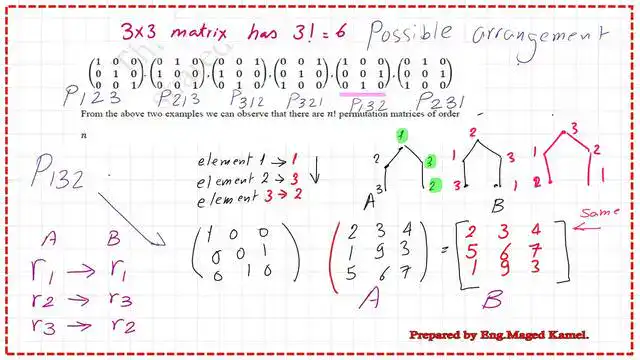 3x3 matrix has 3! = 6 Possible arrangement
(1 0 0) (0 1 0) (0 1 0) (0 0 1) (1 0 0) (0 0 1)
(0 1 0), (1 0 0), (0 0 1), (0 1 0), (0 0 1), (1 0 0)
(0 0 1) (0 0 1) (1 0 0) (1 0 0) (0 1 0) (0 1 0)
P123 P213 P312 P321 P132 P231
From the above two examples we can observe that there are n! permutation matrices of order
n
P132
element 1 → 1
element 2 → 3
element 3 → 2
↓
1
2 3
3 2
A
2
1 3
3 1
B
3
1 2
2 1
Same
A B
r1 → r1
r2 → r3
r3 → r2
1 0 0
0 0 1
0 1 0
2 3 4
1 9 3
5 6 7
A
=
2 3 4
5 6 7
1 9 3
B
Prepared by Eng.Maged Kamel.